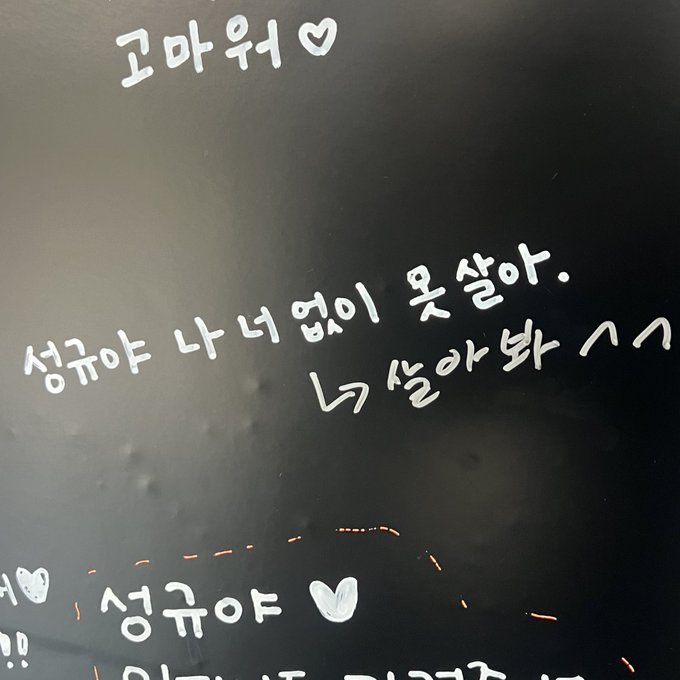 고마워♡
성규야 나 너 없이 못 살아.
↳ 살아봐 ^^
성규야 ♥
!!